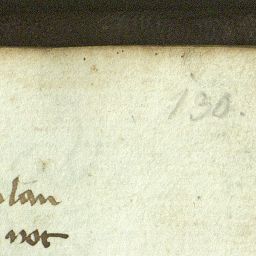 130.
lan
not